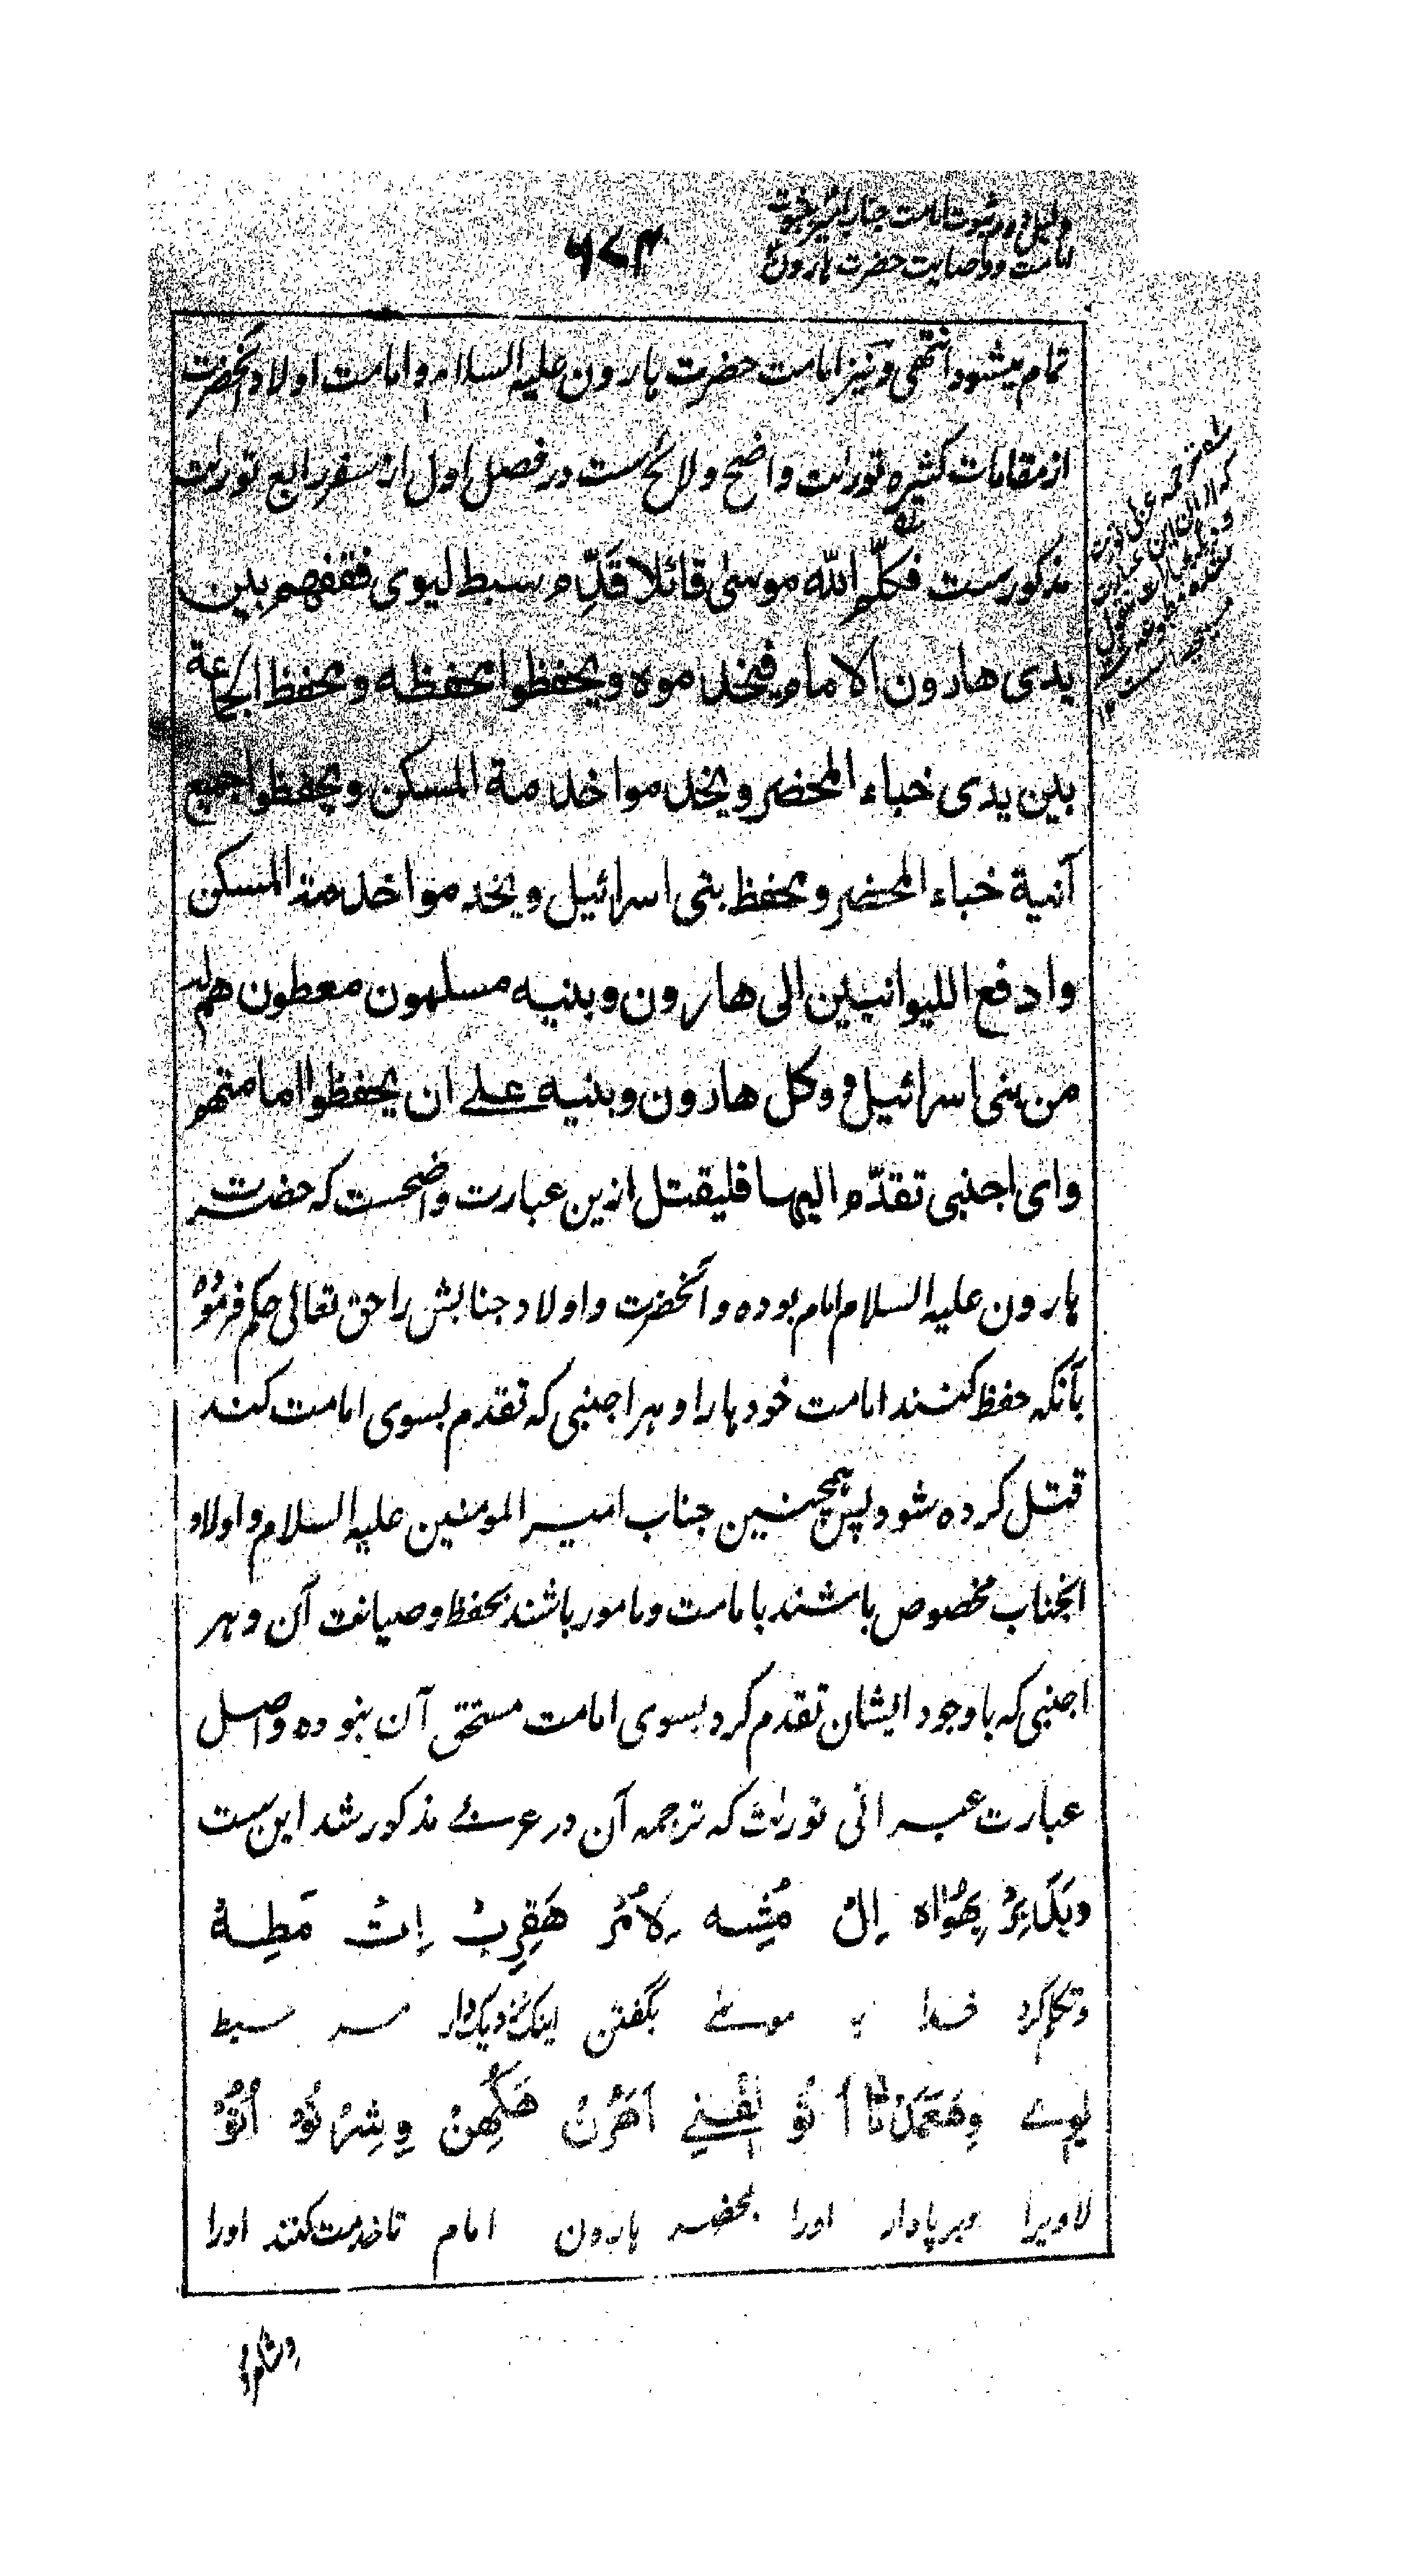 دلیل دوم ثبوت امامت جناب امیر بثبوت
امامت و وصایت حضرت هارون
۶۷۴
تمام میشود انتهی و نیز امامت حضرت هارون علیه السلام و امامت اولاد آنحضرت
از مقامات کثیره تورات واضح و لائح ست در فصل اول از سفر رابع تورات
مذکورست فکلّم الله موسی قائلا قَدِّم سبط لیوی فقفهم بین
یدی هارون الامام فیخدموه ویحفظوا محفظه ومحفظ الجماعة
بین یدی خباء المحضر ویخدموا خدمة المسکن ویحفظوا جمیع
آنیة خباء المحضر ومحفظ بنی اسرائیل ویخدموا خدمة المسکن
وادفع اللیوانیین الی هارون وبنیه مسلمون معطون هم له
من بنی اسرائیل ووکل هارون وبنیه علی ان یحفظوا امامتهم
وای اجنبی تقدّم الیها فلیقتل ازین عبارت واضحست که حضرت
هارون علیه السلام امام بوده و آنحضرت و اولاد جنابش را حق تعالی حکم فرموده
بآنکه حفظ کنند امامت خودها را و هر اجنبی که تقدم بسوی امامت کند
قتل کرده شود پس همچنین جناب امیر المومنین علیه السلام و اولاد
آنجناب مخصوص باشند بامامت و مامور باشند بحفظ و صیانت آن و هر
اجنبی که باوجود ایشان تقدم کرد بسوی امامت مستحق آن نبوده و اصل
عبارت عبرانی تورات که ترجمه آن در عربی مذکور شد این ست
وِیَدَبِرْ یِهُوَاه اِلْ مُشِه لِامُرْ هَقِرِبْ اِتْ مَطِهْ
وتکلم کرد خدا به موسی بگفتن اینک نزدیک دار مر سبط
لاویرا وبرپادار اورا بمحضر هارون امام تا خدمت کنند اورا